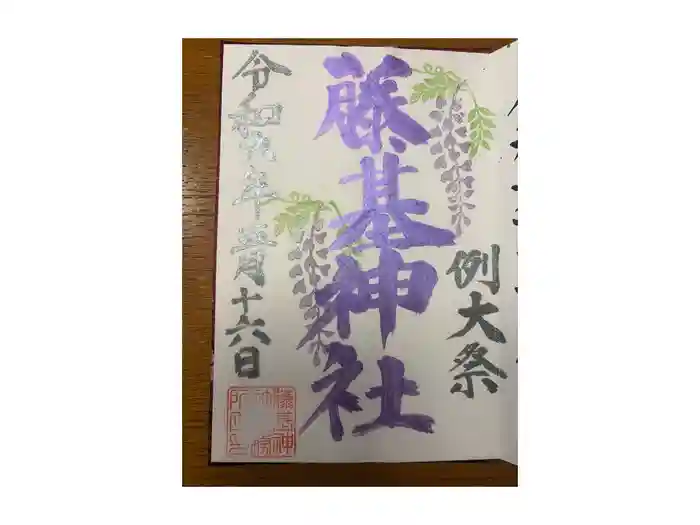 例大祭
藤基神社
令和六年五月十六日